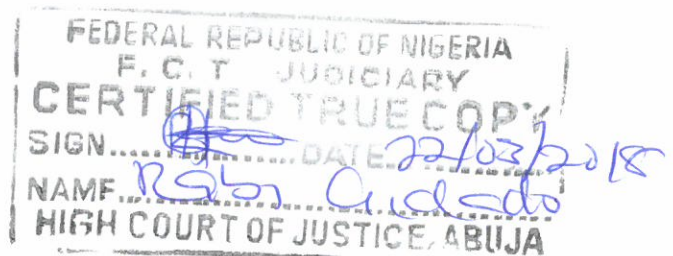 FEDERAL REPUBLIC OF NIGERIA
F. C. T JUDICIARY
CERTIFIED TRUE COPY
SIGN.................DATE 22/03/2018
NAME
HIGH COURT OF JUSTICE, ABUJA